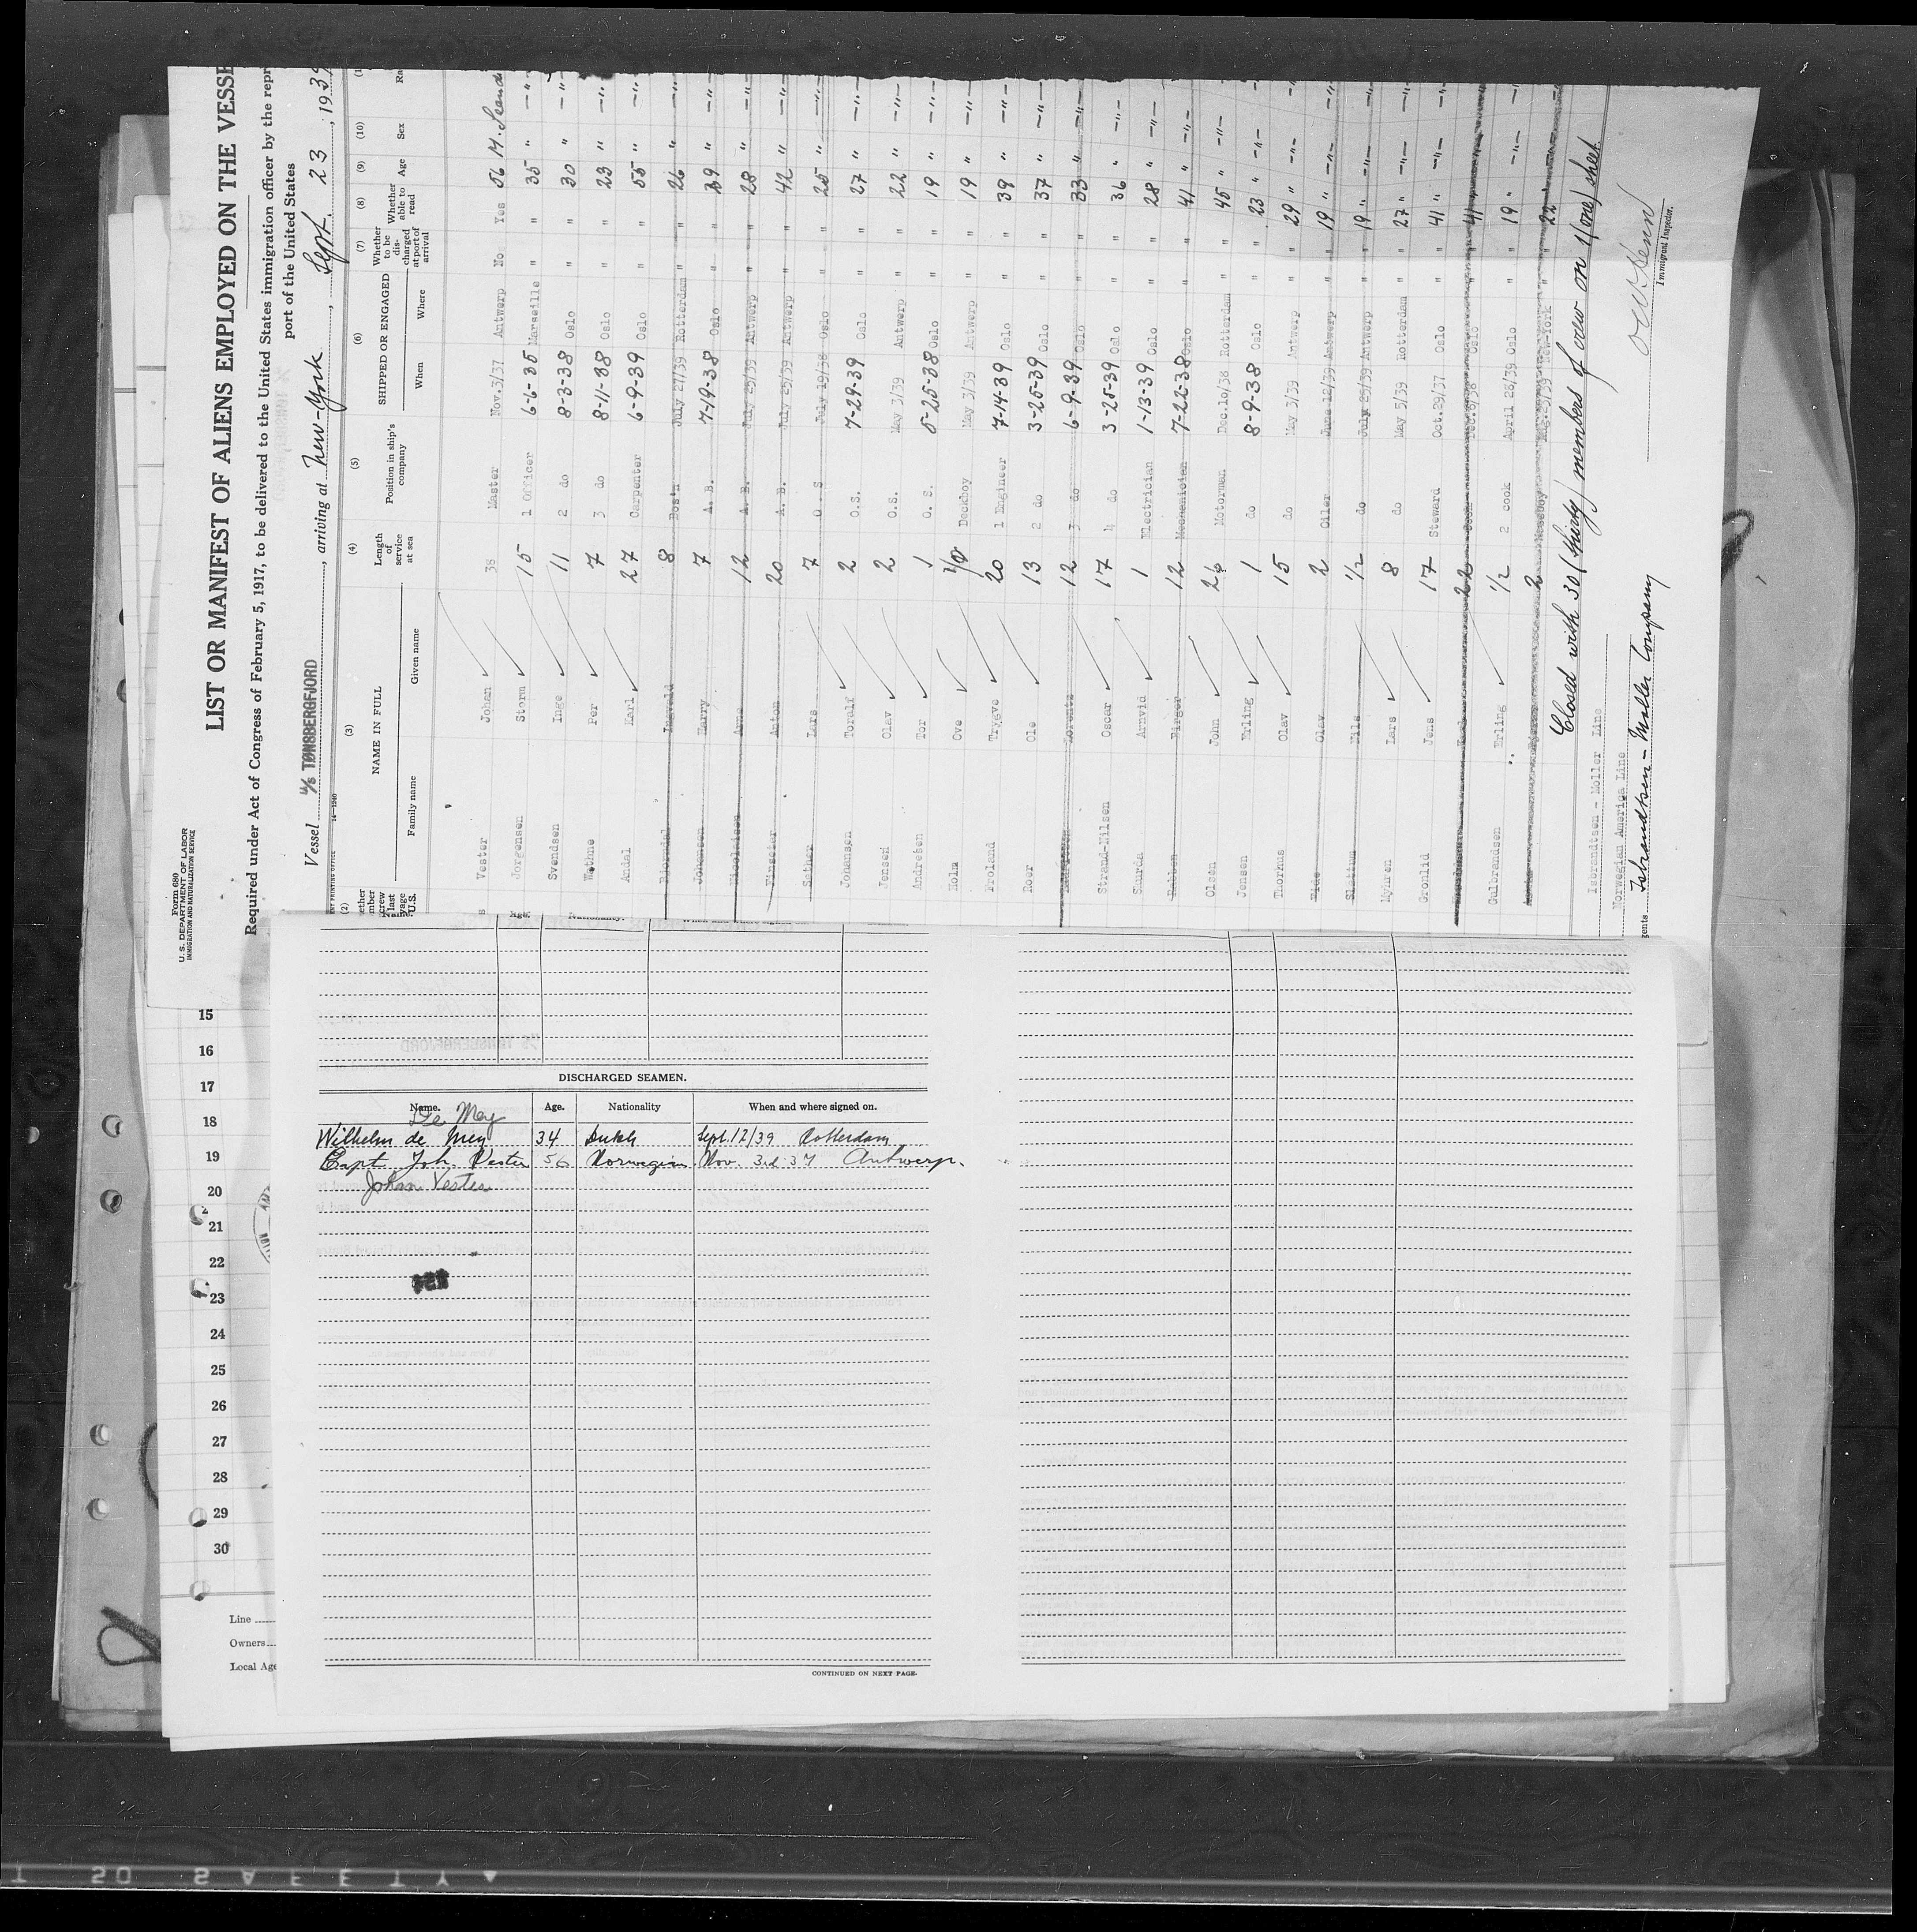 Form 680
U. S. DEPARTMENT OF LABOR
IMMIGRATION AND NATURALIZATION SERVICE
LIST OR MANIFEST OF ALIENS EMPLOYED ON THE VESSE
Required under Act of Congress of February 5, 1917, to be delivered to the United States immigration officer by the repr
port of the United States
Vessel M/S TØNSBERGFJORD, arriving at New-York, Sept. 23, 1939
(2) (3) (4) (5) (6) (7) (8) (9) (10)
NAME IN FULL Length of service at sea Position in ship's company SHIPPED OR ENGAGED Whether to be discharged at port of arrival Whether able to read Age Sex Ra
Family name Given name When Where
Vester Johan 38 Master Nov.3/37 Antwerp No Yes 56 M. Scand
Jorgensen Storm 15 1 Officer 6-6-35 Marseille " " 35 " —"—
Svendsen Inge 11 2 do 8-3-38 Oslo " " 30 " —"—
Wethne Per 7 3 do 8-11-38 Oslo " " 23 " —"—
Andal Karl 27 Carpenter 6-9-39 Oslo " " 55 " —"—
Ingvald 8 Bos'n July 27/39 Rotterdam " " 26 " —"—
Johansen Harry 7 A. B. 7-19-38 Oslo " " 29 " —"—
Nicolaisen Arne 12 A. B. July 25/39 Antwerp " " 28 " —"—
Finseter Anton 20 A. B. July 25/39 Antwerp " " 42 " —"—
Sether Lars 7 O. S. July 19/38 Oslo " " 25 " —"—
Johansen Toralf 2 O.S. 7-29-39 Oslo " " 27 " —"—
Jensen Olav 2 O.S. May 3/39 Antwerp " " 22 " —"—
Andresen Tor 1 O. S. 5-25-38 Oslo " " 19 " —"—
Holm Ove Deckboy May 3/39 Antwerp " " 19 " —"—
Froland Trygve 20 1 Engineer 7-14-39 Oslo " " 39 " —"—
Roer Ole 13 2 do 3-25-39 Oslo " " 37 " —"—
Lorentz 12 3 do 6-9-39 Oslo " " 33 " —"—
Strand-Nilsen Oscar 17 4 do 3-25-39 Oslo " " 36 " —"—
Skurda Arnvid 1 Electrician 1-13-39 Oslo " " 28 " —"—
Birger 12 Mechanician 7-22-38 Oslo " " 41 " —"—
Olsen John 26 Motorman Dec.10/38 Rotterdam " " 45 " —"—
Jensen Erling 1 do 8-9-38 Oslo " " 23 " —"—
Thorhus Olav 15 do May 3/39 Antwerp " " 29 " —"—
Eide Olav 2 Oiler June 12/39 Antwerp " " 19 " —"—
Slettum Nils 1/2 do July 25/39 Antwerp " " 19 " —"—
Myhren Lars 8 do May 5/39 Rotterdam " " 27 " —"—
Gronlid Jens 17 Steward Oct.29/37 Oslo " " 41 " —"—
22 Cook Dec.6/38 Oslo " " 41 " —"—
Gulbrandsen Erling 1/2 2 cook April 26/39 Oslo " " 19 " —"—
2 Messboy New-York " " 22 " —"—
Closed with 30 (thirty) members of crew on 1 (one) sheet
Isbrandtsen - Moller Line
Norwegian America Line
Isbrandtsen - Moller Company
Immigrant Inspector.
15
16
17
18
19
20
21
22
23
24
25
26
27
28
29
30
Line
Owners
Local Age
DISCHARGED SEAMEN.
Name. Age. Nationality When and where signed on.
De Mey
Wilhelm de Mey 34 Dutch Sept. 12/39 Rotterdam
Capt. Joh. Vester 56 Norwegian Nov. 3rd 37 Antwerp.
Johan Vester
CONTINUED ON NEXT PAGE.
SAFETY